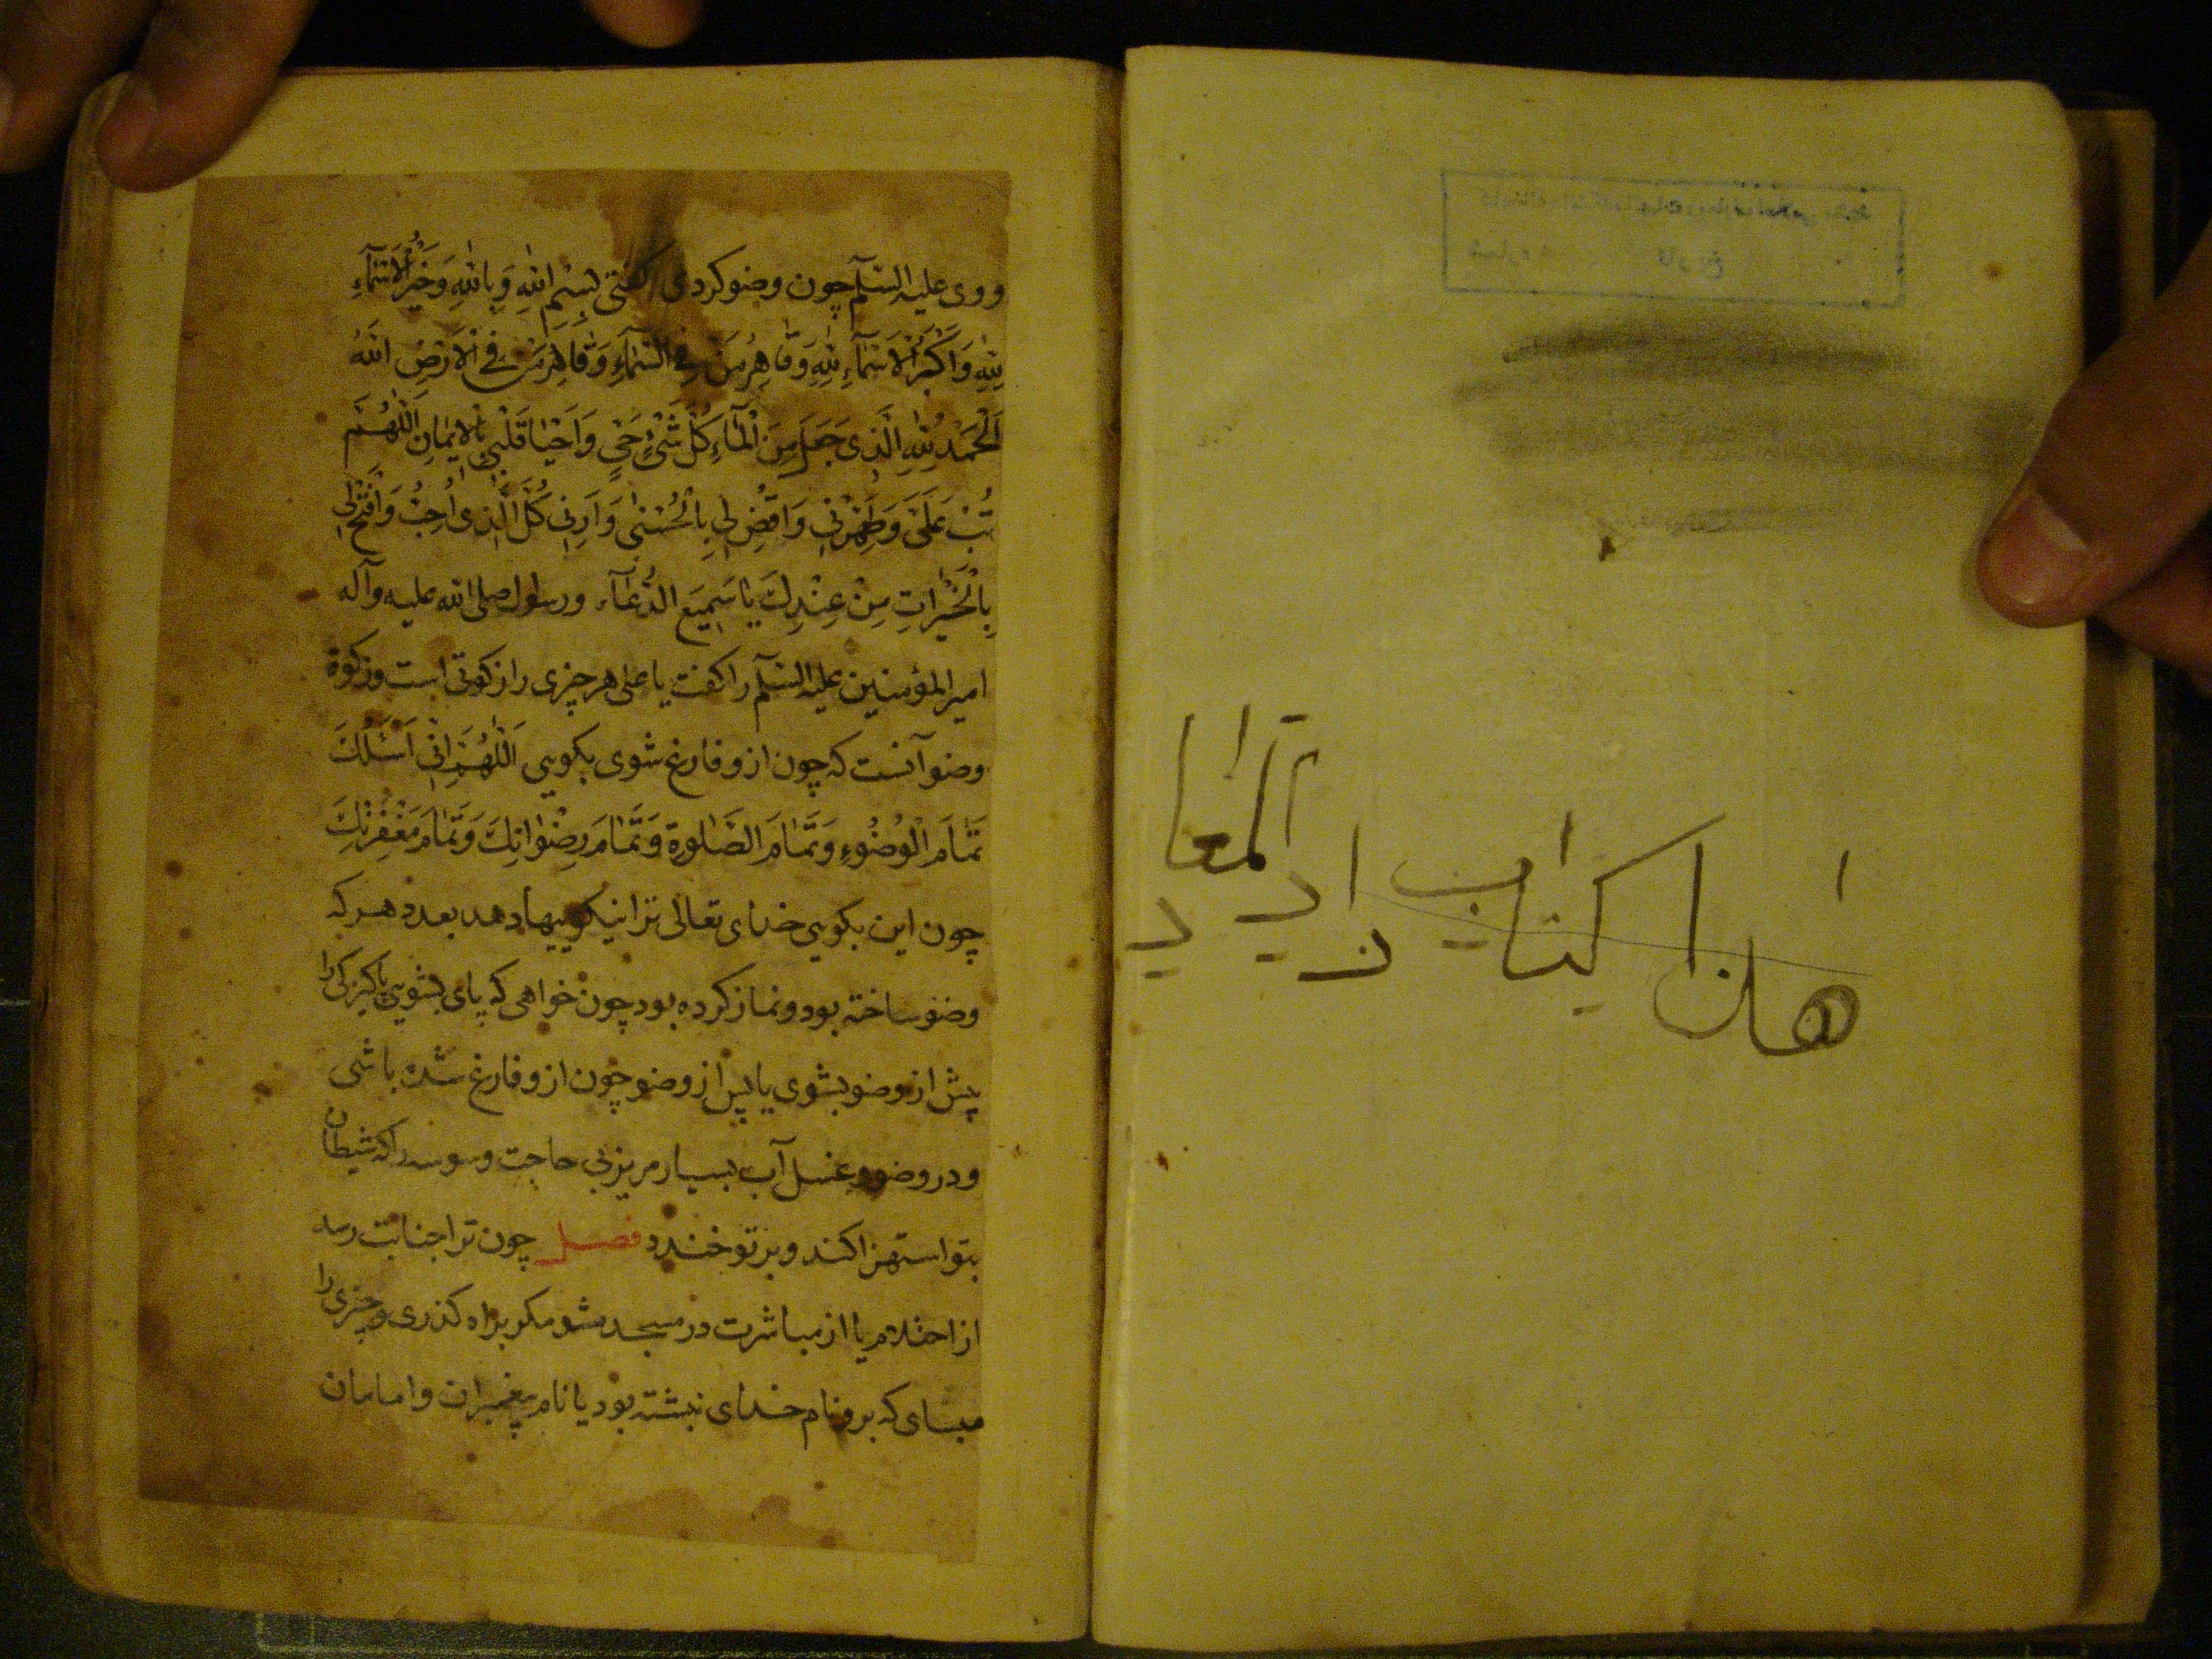 هذا کتاب زاد المعاد
و وی علیه السّلم چون وضو کردی گفتی بِسْمِ اللهِ وَبِاللهِ وَخَیْرُ الاَسْمَآءِ
لِلّهِ وَاَکْبَرُ الْاَسْمَآءِ لِلّهِ وَقَاهِرُ مَنْ فِی السَّمَاءِ وَقَاهِرُ مَنْ فِی الْاَرْضِ اللهُ
اَلْحَمْدُ لِلّهِ الَّذِی جَعَلَ مِنَ الْمَاءِ کُلَّ شَیْءٍ حَیٍّ وَاَحْیَا قَلْبِی بِالْایمَانِ اَللّهُمَّ
تُبْ عَلَیَّ وَطَهِّرْنِی وَاقْضِ لِی بِالْحُسْنیٰ وَاَرِنِی کُلَّ الَّذِی اُحِبُّ وَافْتَحْ لِی
بِالْخَیْرَاتِ مِنْ عِنْدِكَ یَا سَمِیعَ الدُّعَآء و رسول صلی الله علیه و آله
امیر المؤمنین علیه السّلم را گفت یا علی هر چیزی را زکوتی است و زکوة
وضو آنست که چون ازو فارغ شوی بگویی اَللّهُمَّ اِنّی اَسْئَلُكَ
تَمَامَ الْوُضُوءِ وَتَمَامَ الصَّلوةِ وَتَمَامَ رِضْوَانِكَ وَتَمَامَ مَغْفِرَتِكَ
چون این بگویی خدای تعالی ترا نیکوییها دهد بعدد هر که
وضو ساخته بود و نماز کرده بود چون خواهی که پای بشویی پاکیزگی را
پیش از وضو بشوی یا پس از وضو چون ازو فارغ شده باشی
و در وضو و غسل آب بسیار مریز بی حاجت وسوسه را که شیطان
بتو استهزا کند و بر تو خندد فصل چون ترا جنابت رسد
از احتلام یا از مباشرت در مسجد مشو مگر براه گذری و چیزی را
مبسای که برو نام خدای نبشته بود یا نام پیغمبران و امامان